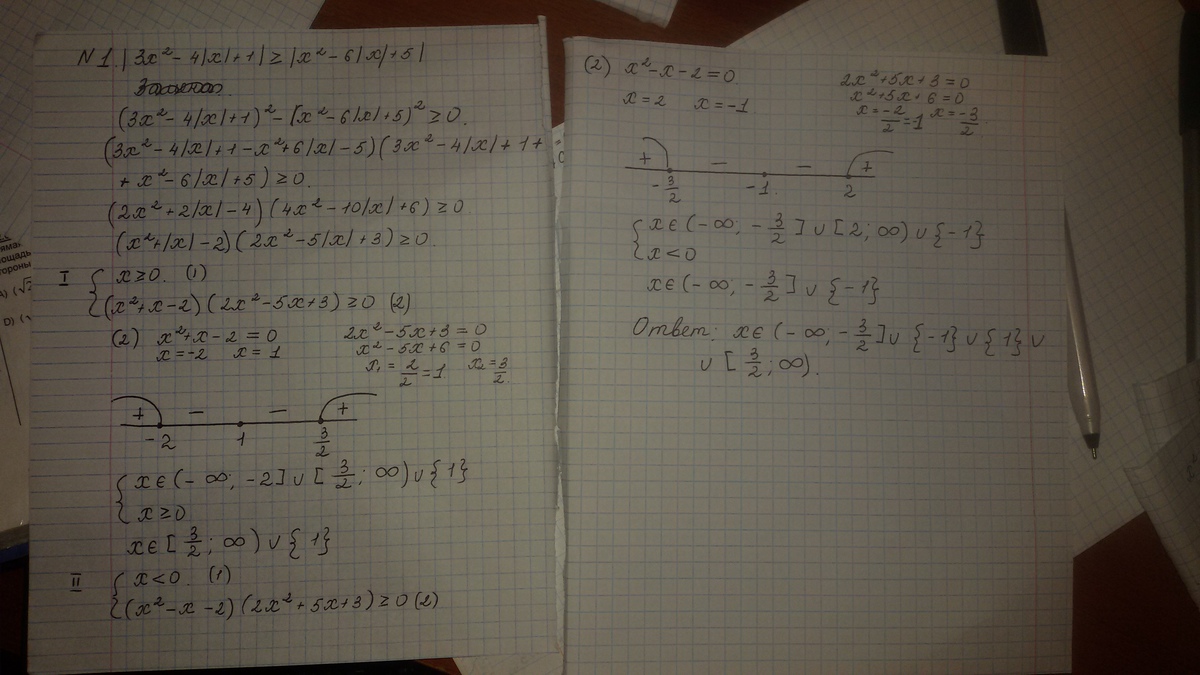 N1. |3x²-4|x|+1|≥|x²-6|x|+5|
(3x²-4|x|+1)²-[x²-6|x|+5)²≥0.
(3x²-4|x|+1-x²+6|x|-5)(3x²-4|x|+1+
+x²-6|x|+5)≥0.
(2x²+2|x|-4)(4x²-10|x|+6)≥0
(x²+|x|-2)(2x²-5|x|+3)≥0.
I { x≥0. (1)
(x²+x-2)(2x²-5x+3)≥0 (2)
(2) x²+x-2=0 2x²-5x+3=0
x=-2 x=1 x²-5x+6=0
x₁=2/2=1 x₂=3/2.
+ - - +
-2 1 3/2
{ x∈(-∞;-2]∪[3/2;∞)∪{1}
x≥0
x∈[3/2;∞)∪{1}
II { x<0. (1)
(x²-x-2)(2x²+5x+3)≥0 (2)
(2) x²-x-2=0. 2x²+5x+3=0
x=2 x=-1. x²+5x+6=0
x=-2/2=1 x=-3/2.
+ - - +
-3/2 -1. 2
{ x∈(-∞;-3/2]∪[2;∞)∪{-1}
x<0
x∈(-∞;-3/2]∪{-1}
Ответ: x∈(-∞;-3/2]∪{-1}∪{1}∪
∪[3/2;∞).